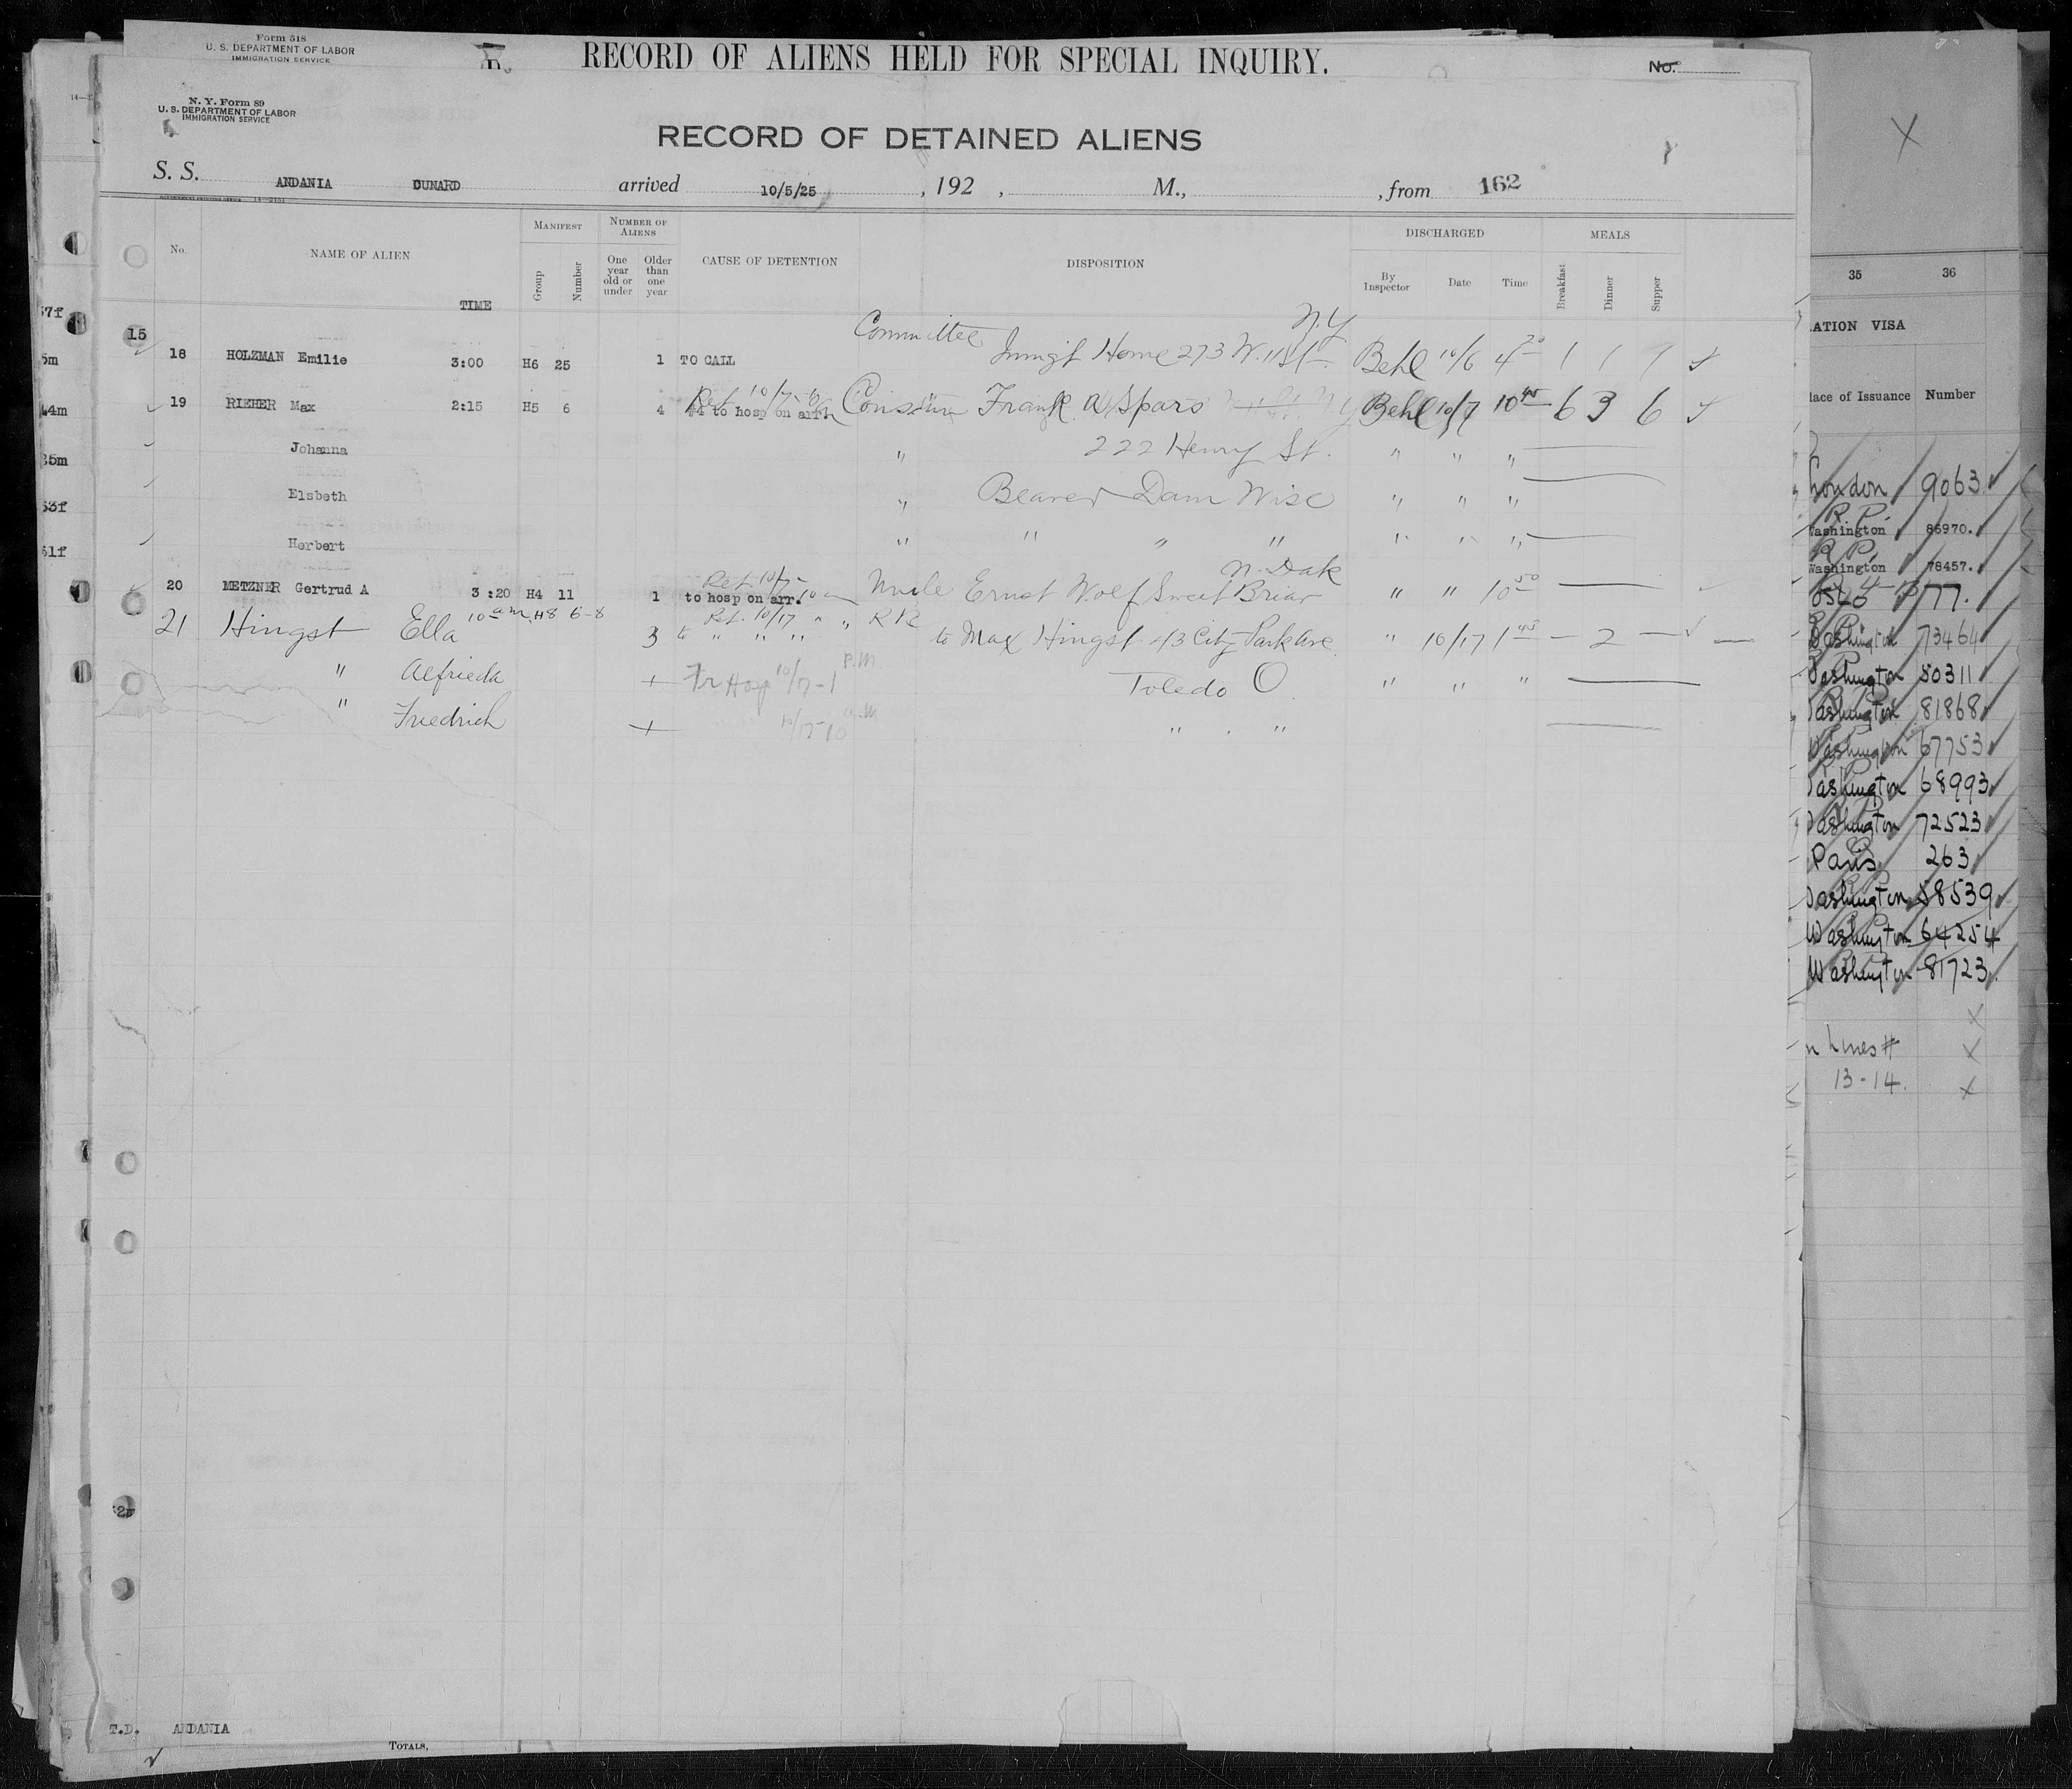 Form 518
U. S. DEPARTMENT OF LABOR
IMMIGRATION SERVICE
RECORD OF ALIENS HELD FOR SPECIAL INQUIRY.
No.
N. Y. Form 89
U. S. DEPARTMENT OF LABOR
IMMIGRATION SERVICE
RECORD OF DETAINED ALIENS
S. S. ANDANIA CUNARD arrived 10/5/25, 192 , M., , from 162
No. NAME OF ALIEN TIME MANIFEST Group Number NUMBER OF ALIENS One year old or under Older than one year CAUSE OF DETENTION DISPOSITION DISCHARGED By Inspector Date Time MEALS Breakfast Dinner Supper
15
Committee N.Y
18 HOLZMAN Emilie 3:00 H6 25 1 TO CALL Immgt Home 273 W. 11 St. Behl 10/6 4 20 1 1 1
Ret 10/7
19 RIEHER Max 2:15 H5 6 4 #4 to hosp on arr. Frank A Spars Behl 10/7 10 45 6 3 6
Johanna " 222 Henry St. " " "
Elsbeth " Beaver Dam Wisc " " "
Herbert " " " " " " "
Ret. 10/7 N. Dak
20 METZNER Gertrud A 3:20 H4 11 1 to hosp on arr. Uncle Ernst Wolf Sweet Briar " " 10 50
Ret. 10/17 " " RR
21 Hingst Ella 10 am H8 6-8 3 to " " " to Max Hingst 413 City Park Ave " 10/17 1 45 — 2 —
" Alfrieda + Fr Hosp 10/17-1 P.M Toledo O. " " "
" Friedrich + 10/17-10 a.m " "
T.D. ANDANIA
TOTALS,
35 36
ATION VISA
lace of Issuance Number
London 9063
R.P.
Washington 86970.
R P.
Washington 78457.
Oslo 177.
Washington 73464
Washington 50311
Washington 81868
Washington 67753
Washington 68993
Washington 72523
Paris 263
Washington 58539
Washington 64254
Washington 81723
n Lines #
13-14.
7f
5m
44m
35m
53f
51f